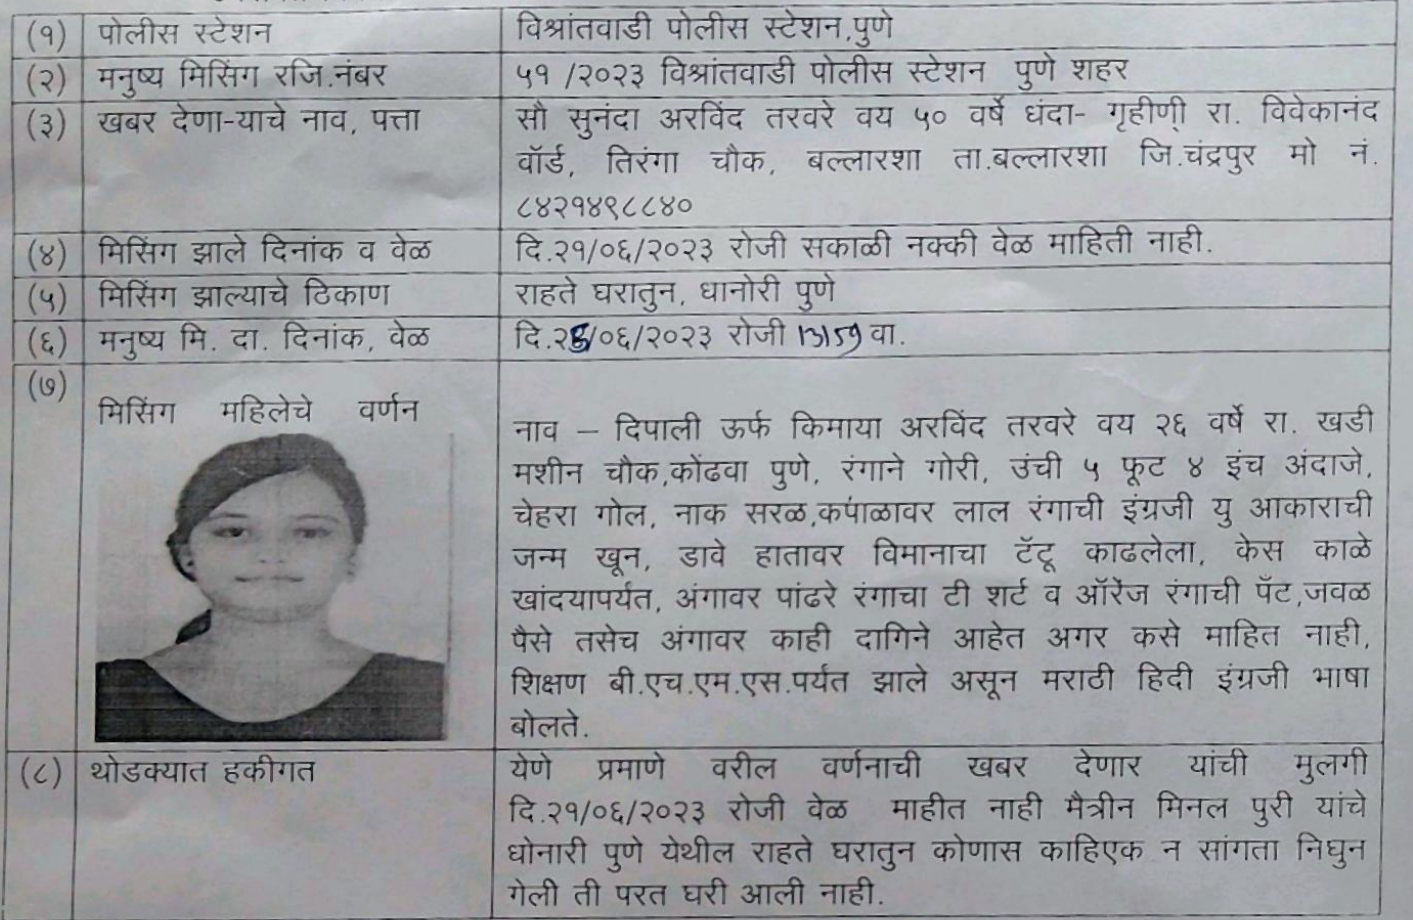 (१) पोलीस स्टेशन विश्रांतवाडी पोलीस स्टेशन,पुणे
(२) मनुष्य मिसिंग रजि.नंबर ५१ /२०२३ विश्रांतवाडी पोलीस स्टेशन पुणे शहर
(३) खबर देणा-याचे नाव, पत्ता सौ सुनंदा अरविंद तरवरे वय ५० वर्षे धंदा- गृहीणी रा. विवेकानंद
वॉर्ड, तिरंगा चौक, बल्लारशा ता.बल्लारशा जि.चंद्रपुर मो नं.
८४२१४९८८४०
(४) मिसिंग झाले दिनांक व वेळ दि.२१/०६/२०२३ रोजी सकाळी नक्की वेळ माहिती नाही.
(५) मिसिंग झाल्याचे ठिकाण राहते घरातुन, धानोरी पुणे
(६) मनुष्य मि. दा. दिनांक, वेळ /०६/२०२३ रोजी वा.
(७)
मिसिंग महिलेचे वर्णन
नाव – दिपाली ऊर्फ किमाया अरविंद तरवरे वय २६ वर्षे रा. खडी
मशीन चौक,कोंढवा पुणे, रंगाने गोरी, उंची ५ फूट ४ इंच अंदाजे,
चेहरा गोल, नाक सरळ,कपाळावर लाल रंगाची इंग्रजी यु आकाराची
जन्म खून, डावे हातावर विमानाचा टॅटू काढलेला, केस काळे
खांदयापर्यंत, अंगावर पांढरे रंगाचा टी शर्ट व ऑरेंज रंगाची पॅट,जवळ
पैसे तसेच अंगावर काही दागिने आहेत अगर कसे माहित नाही,
शिक्षण बी.एच.एम.एस.पर्यंत झाले असून मराठी हिदी इंग्रजी भाषा
बोलते.
(८) थोडक्यात हकीगत येणे प्रमाणे वरील वर्णनाची खबर देणार यांची मुलगी
दि.२१/०६/२०२३ रोजी वेळ माहीत नाही मैत्रीन मिनल पुरी यांचे
धोनारी पुणे येथील राहते घरातुन कोणास काहिएक न सांगता निघुन
गेली ती परत घरी आली नाही.